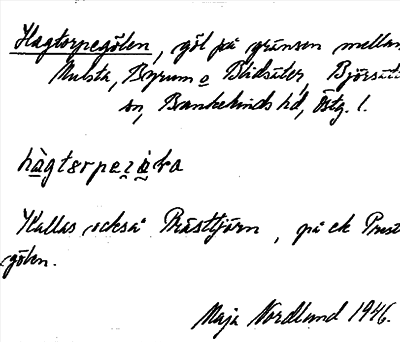 Hagtorpegölen, göl på gränsen mellan
Mulsta, Byrum o Blidsäter, Björsäte
sn, Bankekinds hd, Östg. l.
Kallas också Prästtjärn, på ek Prest
gölen.
Maja Nordlund 1946.